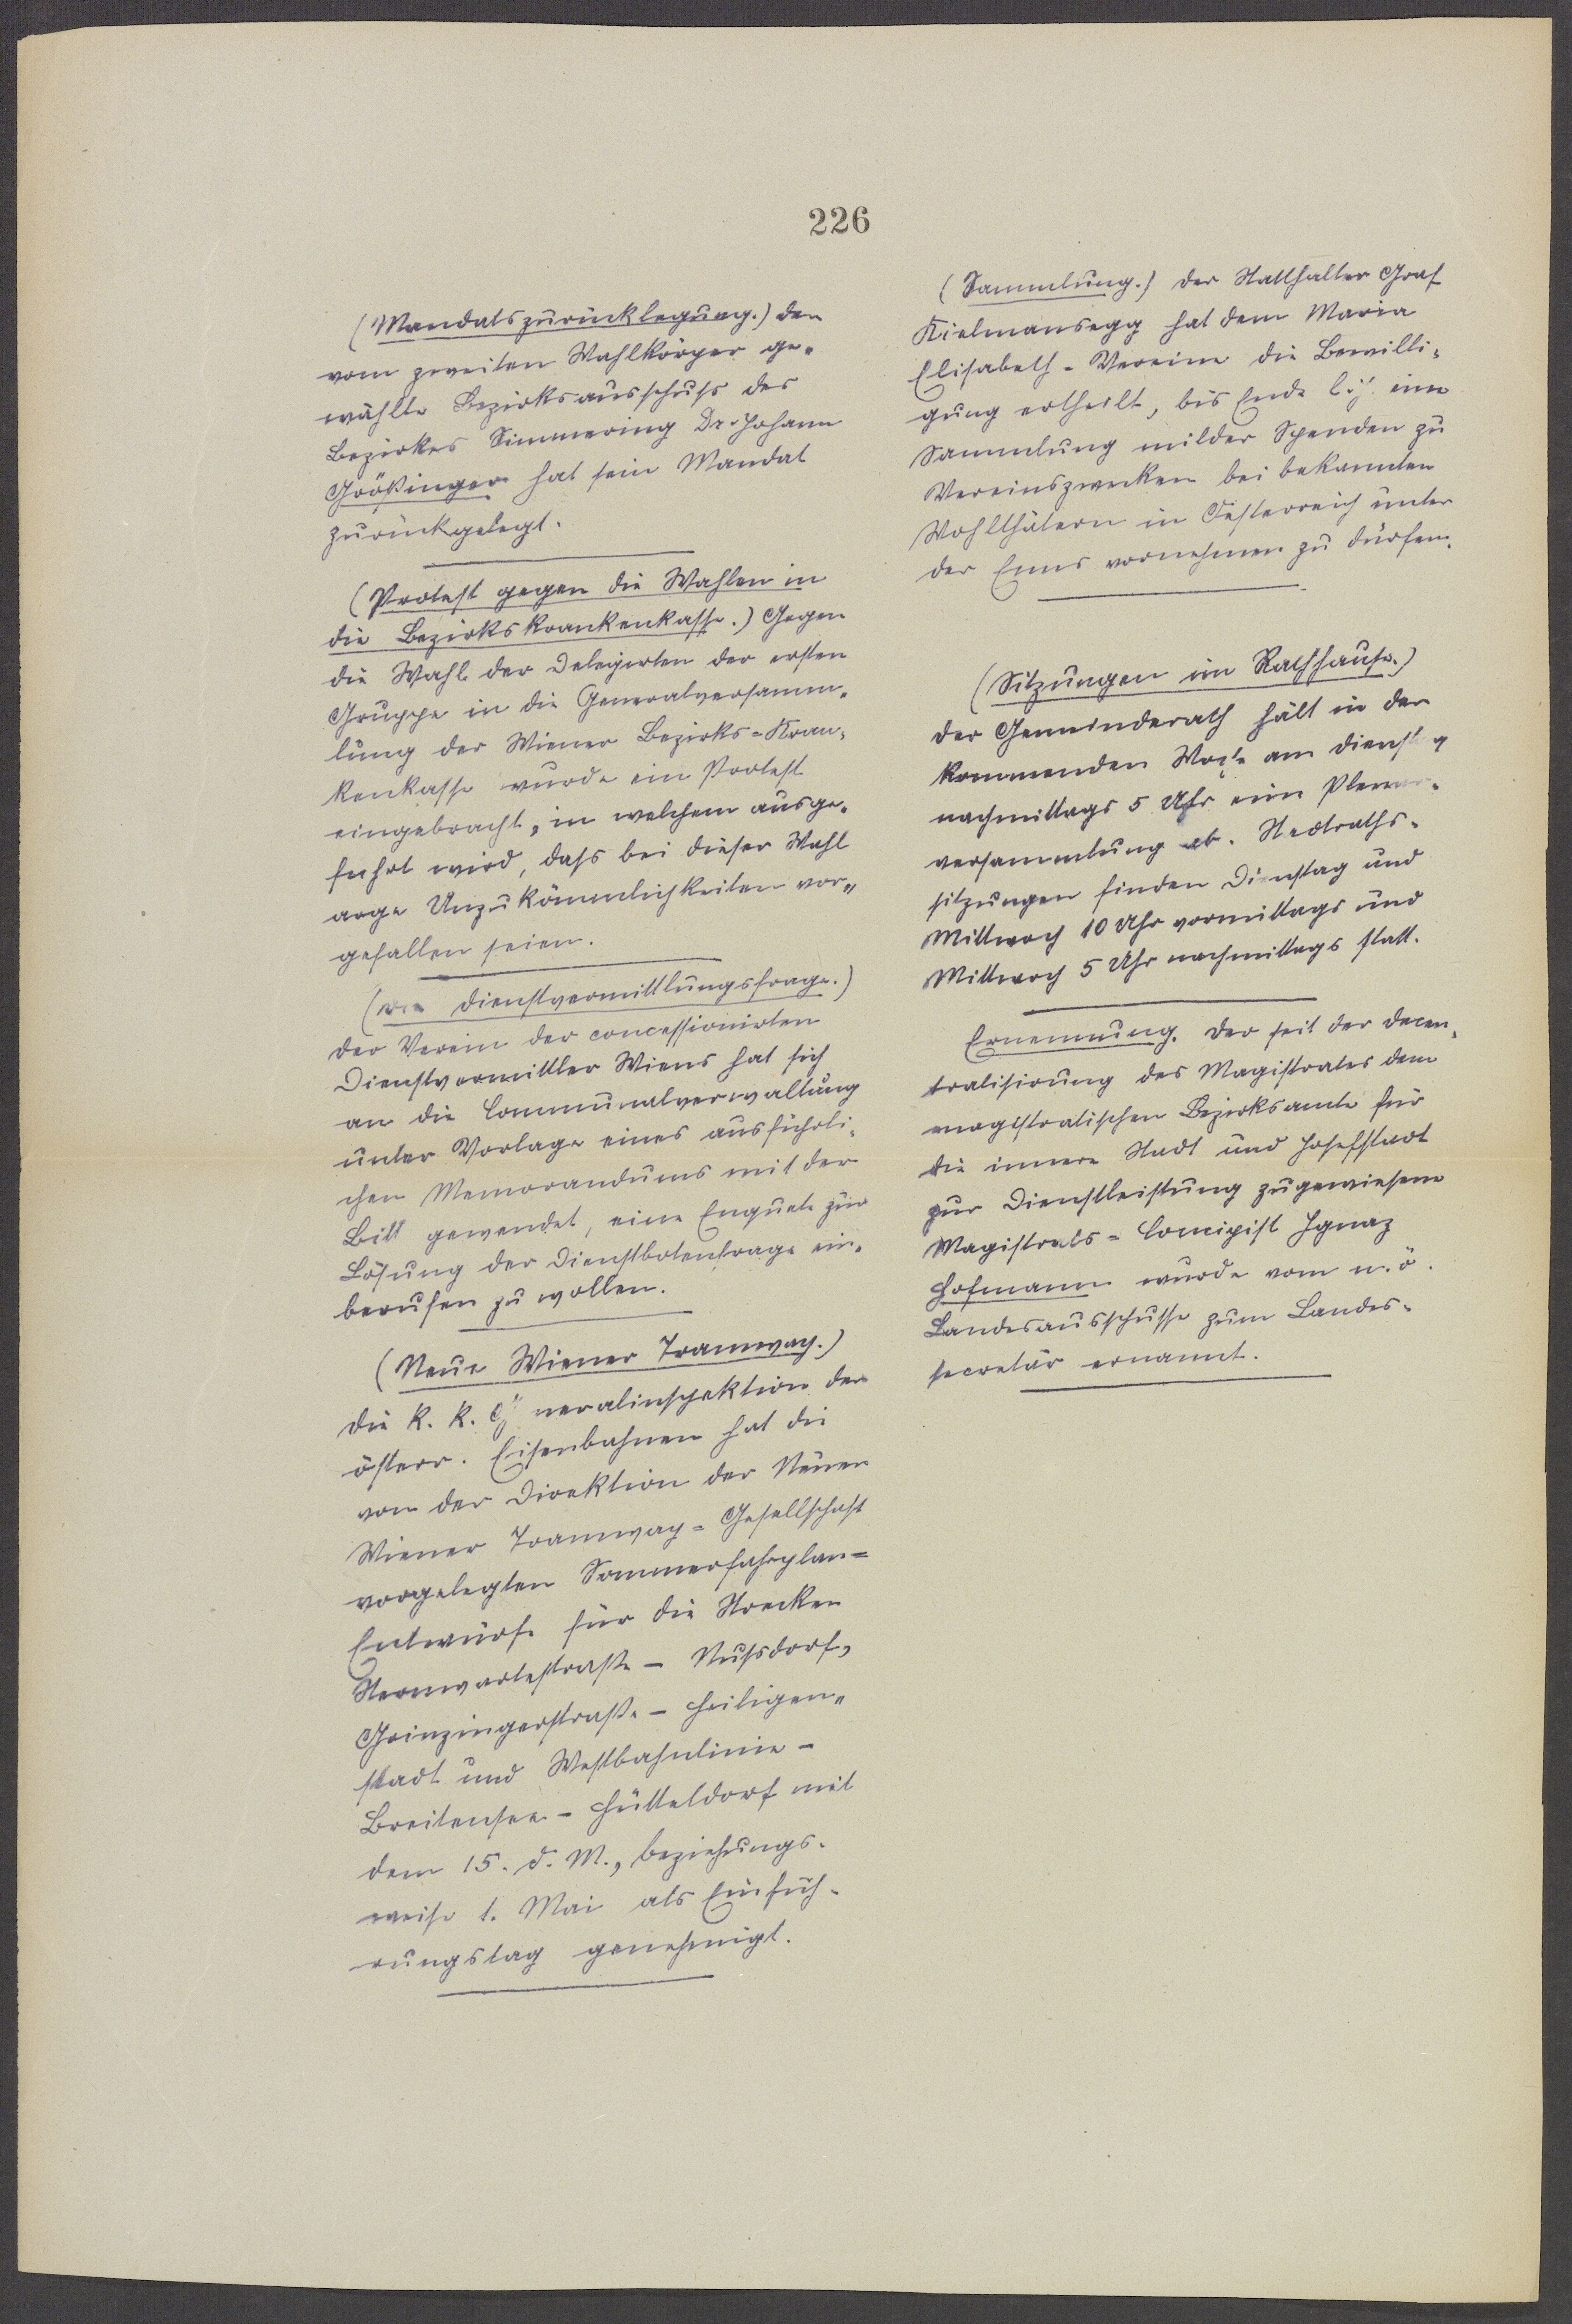 226
(Mandatszurücklegung.) Der
vom zweiten Wahlkörper ge-
wählte Bezirksausschuss des
Bezirkes Simmering Dr. Johann
Größinger hat sein Mandat
zurückgelegt.
(Protest gegen die Wahlen in
die Bezirkskrankenkasse.) Gegen
die Wahl der Delegirten der ersten
Gruppe in die Generalversamm-
lung der Wiener Bezirks-Kran-
kenkasse wurde ein Protest
eingebracht, in welchem ausge-
führt wird, dass bei dieser Wahl
arge Unzukömmlichkeiten vor-
gefallen seien.
(Die Dienstvermittlungsfrage.)
Der Verein der concessionirten
Dienstvermittler Wiens hat sich
an die Communalverwaltung
unter Vorlage eines ausführli-
chen Memorandums mit der
Bitt gewendet, eine Enquete zur
Lösung der Dienstbotenfrage ein-
berufen zu wollen.
(Neue Wiener Tramway.)
Die k. k. Generalinspektion der
österr. Eisenbahnen hat die
von der Direktion der Neuen
Wiener Tramway-Gesellschaft
vorgelegten Sommerfahrplan-
Entwürfe für die Strecken
Sternwartestraße - Nussdorf,
Grinzingerstraße - Heiligen-
stadt und Westbahnlinie -
Breitensee - Hütteldorf mit
dem 15. d. M., beziehungs-
weise 1. Mai als Einfüh-
rungstag genehmigt.
(Sammlung.) Der Statthalter Graf
Kielmansegg hat dem Maria
Elisabeth-Vereine die Bewilli-
gung ertheilt, bis Ende l. J. eine
Sammlung milder Spenden zu
Vereinszwecken bei bekannten
Wohlthätern in Oesterreich unter
der Enns vornehmen zu dürfen.
(Sitzungen im Rathhause.)
Der Gemeinderath hält in der
kommenden Woche am Dienstag
nachmittags 5 Uhr eine Plenar-
versammlung ab. Stadtraths-
sitzungen finden Dienstag und
Mittwoch 10 Uhr vormittags und
Mittwoch 5 Uhr nachmittags statt.
Ernennung. Der seit der Decen-
tralisirung des Magistrates dem
magistratischen Bezirksamte für
die innere Stadt und Josefstadt
zur Dienstleistung zugewiesene
Magistrats-Concipist Ignaz
Hofmann wurde vom n. ö.
Landesausschusse zum Landes-
secretär ernannt.